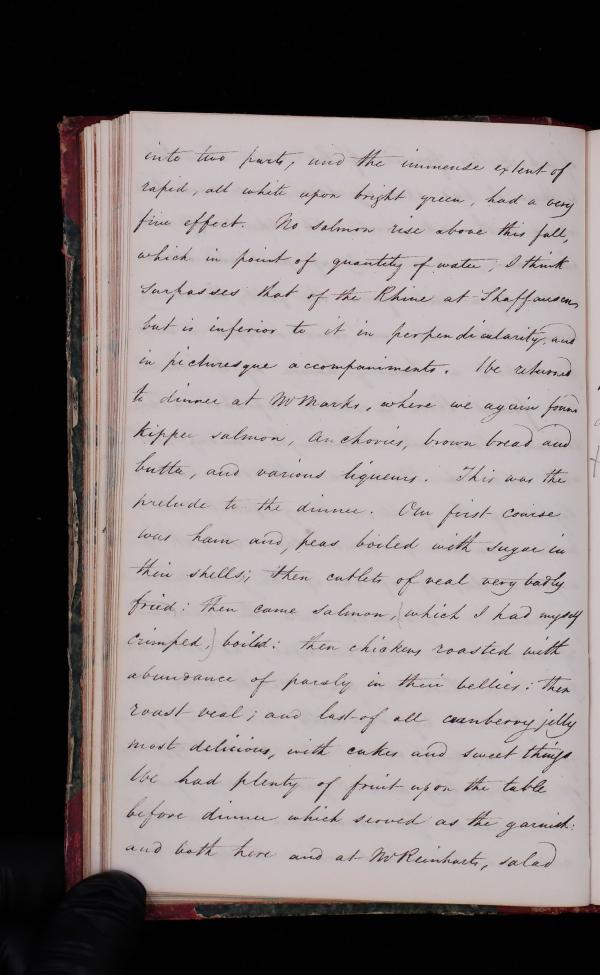 into two parts, and the immense extent of
rapid, all white upon bright green, had a very
fine effect. No salmon rise above this fall,
which in point of quantity of water, I think
surpasses that of the Rhine at Shaffausen,
but is inferior to it in perpendicularity, and
in picturesque accompaniments. We returned
to dinner at Mr Marks, where we again found
kipper salmon, anchovies, brown bread and
butter, and various liqueurs. This was the
prelude to the dinner. Our first course
was ham and peas boiled with sugar in
their shells; then cutlets of veal very badly
fried: then came salmon, (which I had myself
crimped,) boiled: then chickens roasted with
abundance of parsly in their bellies: then
roast veal; and last of all cranberry jelly
most delicious, with cakes and sweet things
We had plenty of fruit upon the table
before dinner which served as the garnish:
and both here and at Mr Reinharts, salad